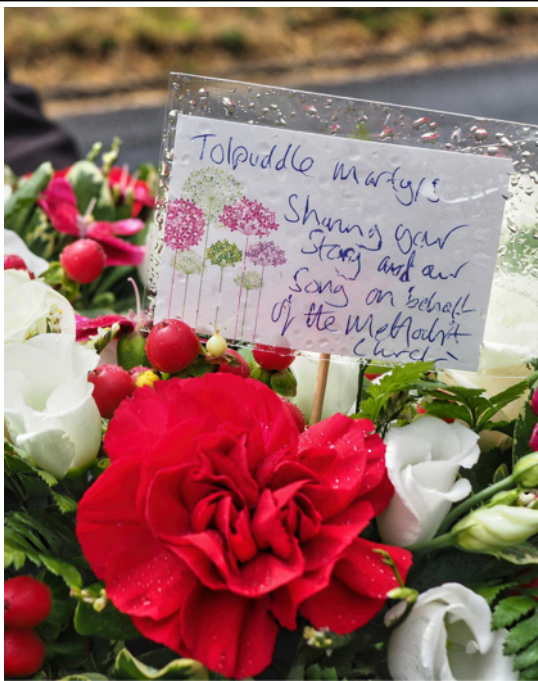 Tolpuddle Martyrs
Sharing your
Story and our
Song on behalf
of the Methodist
Church